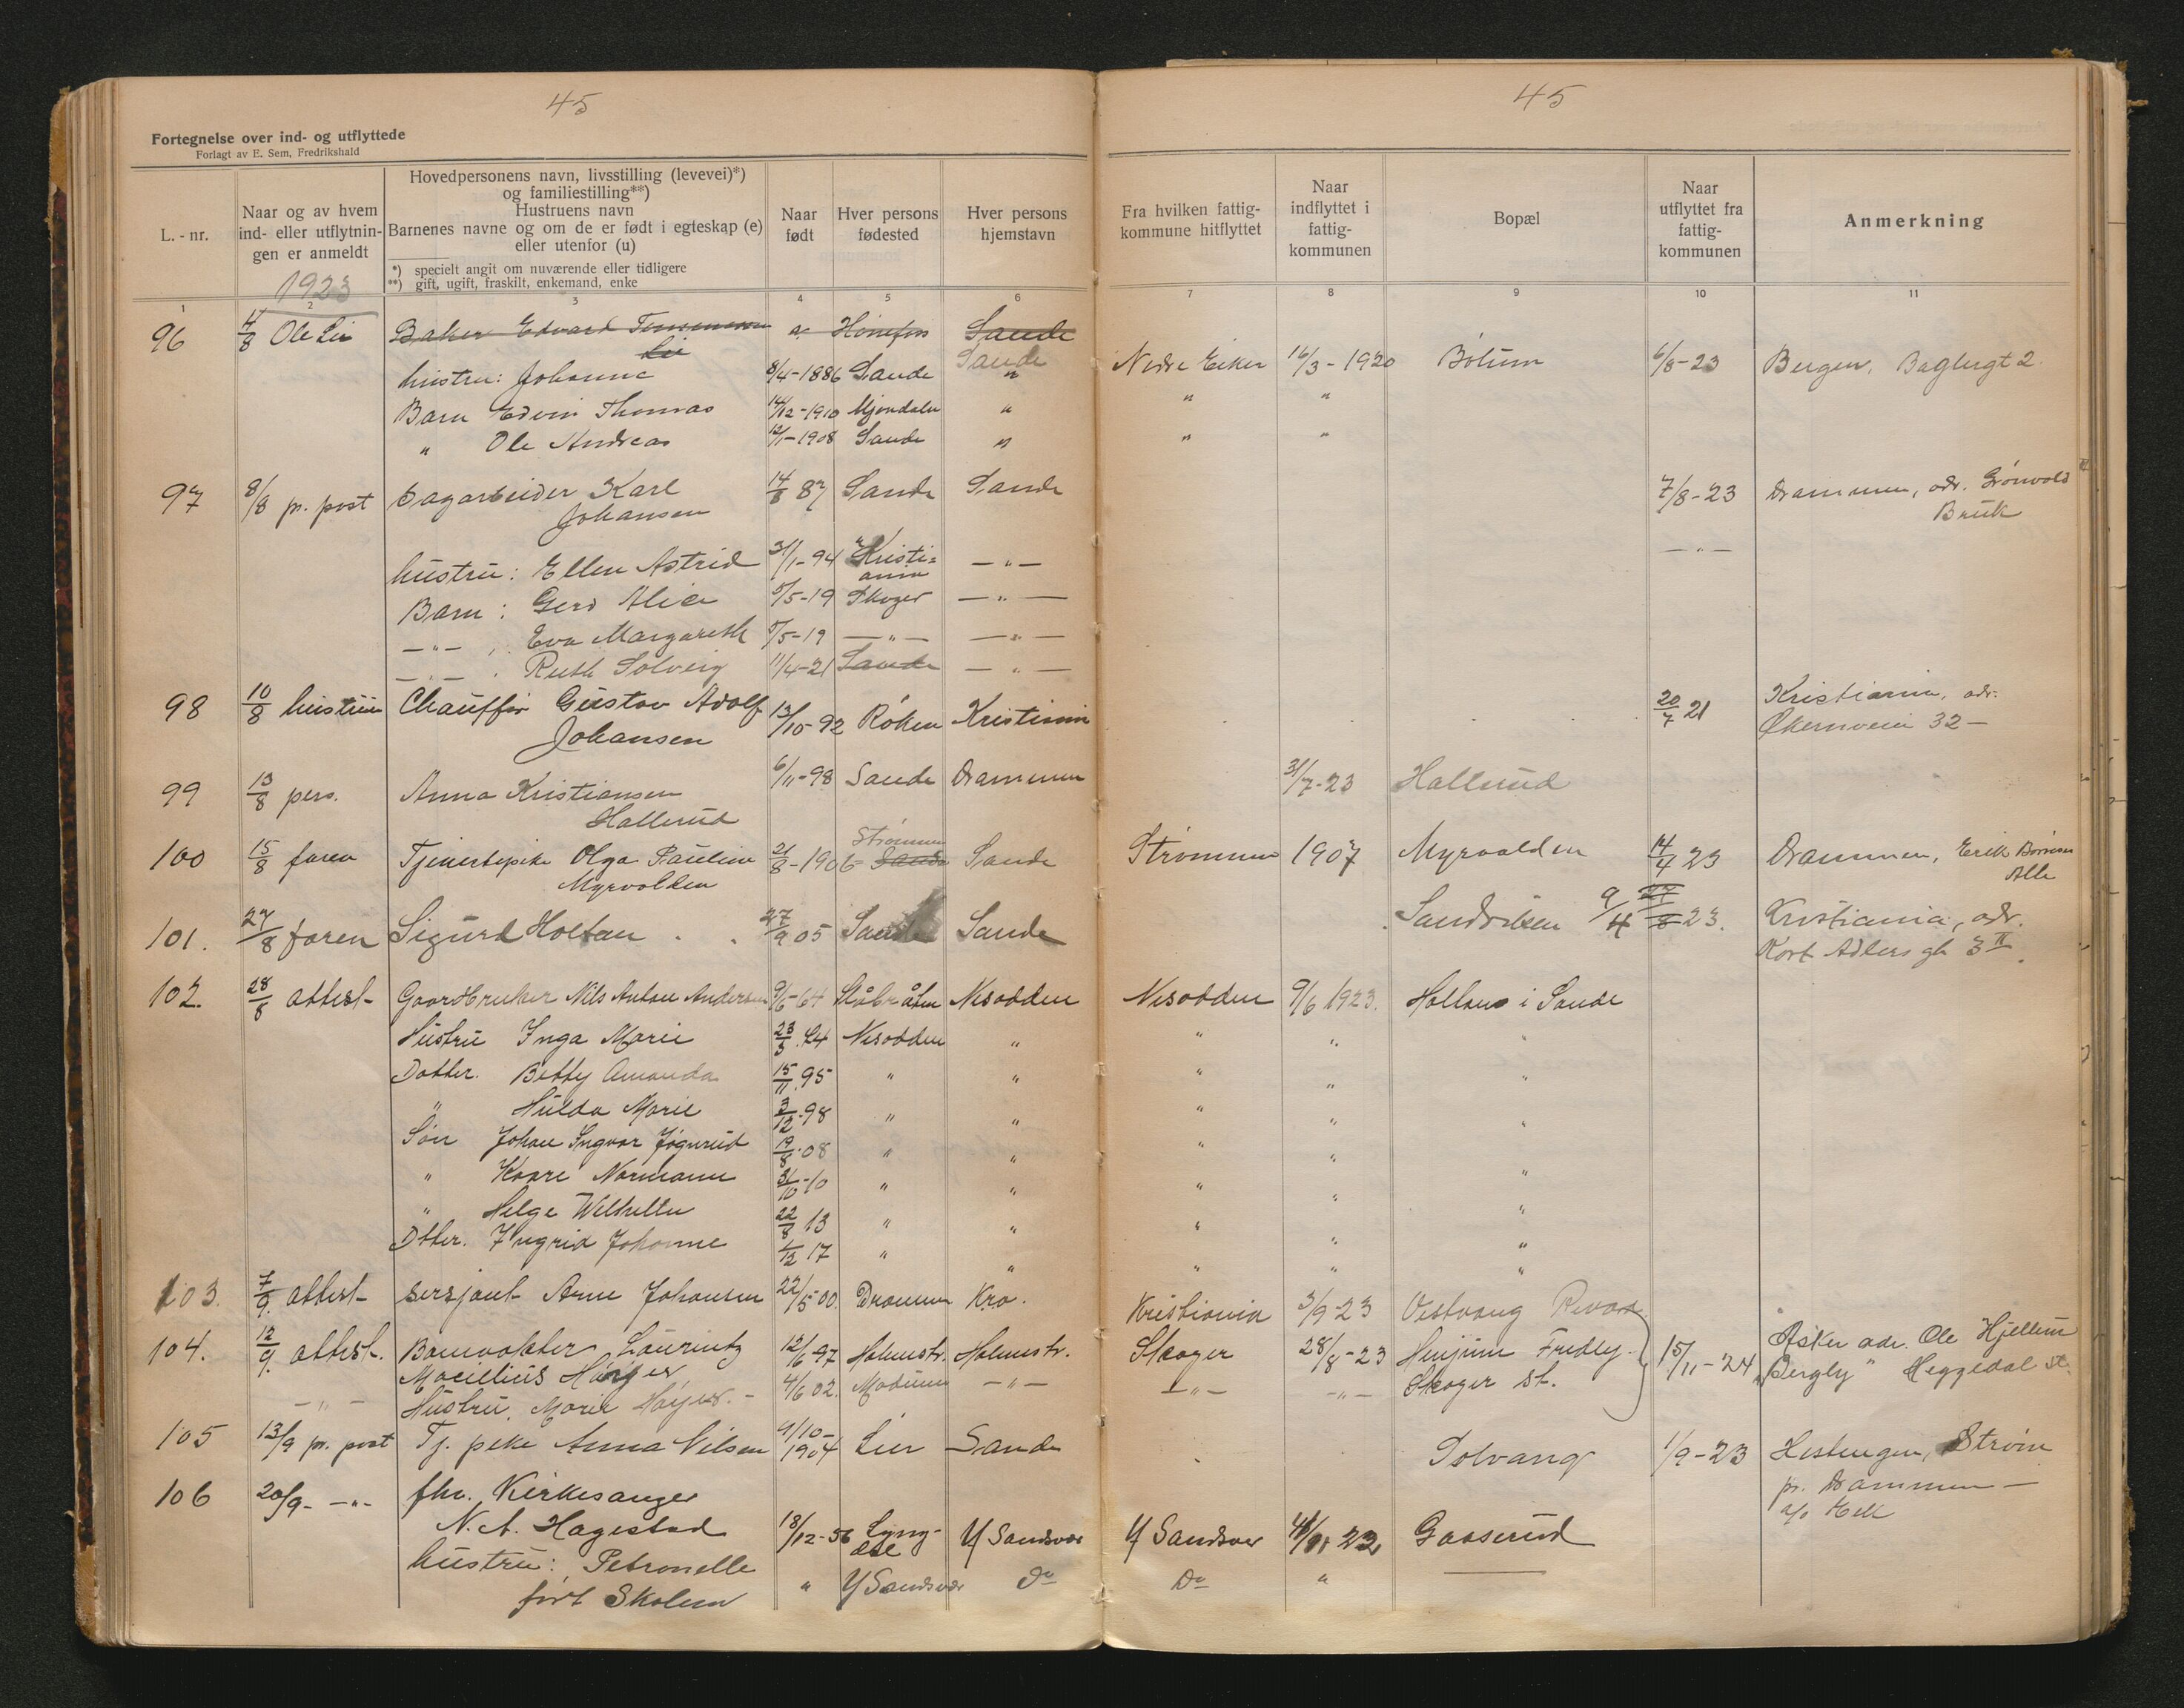 45
45
Fortegnelse over ind- og utflyttede
Forlagt av E. Sem, Fredrikshald
L.-nr.
Naar og av hvem ind- eller utflytningen er anmeldt
1923
Hovedpersonens navn, livsstilling (levevei)*)
og familiestilling**)
Hustruens navn
Barnenes navne og om de er født i egteskap (e)
eller utenfor (u)
*) specielt angit om nuværende eller tidligere
**) gift, ugift, fraskilt, enkemand, enke
Naar født
Hver persons fødested
Hver persons hjemstavn
Fra hvilken fattigkommune hitflyttet
Naar indflyttet i fattigkommunen
Bopæl
Naar utflyttet fra fattigkommunen
Anmerkning
1 2 3 4 5 6 7 8 9 10 11
96 4/8 Ole Lie Baker Edvard Lie Hønefos Sande
hustru: Johanne 8/4-1886 Sande Sande " Nedre Eiker 16/3-1920 Bolum 6/8-23 Bergen, Baglugt 2
Barn Edvin Thomas 14/12-1910 Mjøndalen " " "
" Ole Andreas 12/1-1908 Sande " " "
97 8/8 pr. post Sagarbeider Karl Johansen 14/8 87 Sande Sande 7/8-23 Drammen, adr. Grønvold Bruk
hustru: Ellen Astrid 31/1-94 Kristiania —"— —"—
Barn: Gerd Alice 5/5-19 Skoger —"—
—"— Eva Margareth 5/5-19 —"— —"—
—"— Ruth Solveig 11/4-21 Sande —"—
98 10/8 hustru Chauffør Gustav Adolf Johansen 13/10-92 Røken Kristiania 20/7 21 Kristiania, adr. Økernveien 32-
99 13/8 pers. Anna Kristiansen Hallerud 6/11-98 Sande Drammen 31/7-23 Hallerud
100 15/8 faren Tjenestepike Olga Pauline Myrvolden 21/8-1906 Strømmen Sande Sande Strømmen 1907 Myrvolden 14/4 23 Drammen, Erik Børresen Alle
101. 27/8 faren Sigurd Holtan 27/9 05 Sande Sande 9/4 27/8 23. Kristiania, adr. Kort Adlers gt 3 II.
102. 28/8 attest Gaardbruker Nils Anton Andersen 9/5-64 Slåbråten Nesodden Nesodden 9/6 1923. i Sande
Hustru Inga Marie Nesodden " " " "
Datter. Betty Amanda 15/11.95 " " " " "
" Hulda Marie 3/12-98 " " " " "
Søn Johan Ingvar 19/8-08 " " " " "
" Kaare Normann 31/10-10 " " " " "
" Helge 22/8 13 " " " " "
Dtter. Ingrid Johanne 1/12 17 " " " " "
103. 7/9. attest sersjant Arne Johansen 22/5 00. Drammen Kra. Kristiania 3/9-23 Vestvang
104. 12/9. attest. Laurintz Høyer 12/6-97 Holmstr. Holmstr. Skoger 28/8-23 Fredly 15/11-24 Asker adr. Ole Hjellum
—"— Hustru, Høyer. 4/6 02. Modum —"— —"— —"— Skoger st. "Bergly" Heggedal st.
105 13/9 pr. post Tj. pike Anna Nilsen 9/10-1904 Lier Sande Solvang 1/9-23 Hestengen, Strøm pr. Drammen —
106 20/9- —"— fhv. Kirkesanger
N. A. Hagestad 18/12-56 Lyngdal Y Sandsvær Y Sandsvær Gaaserud
hustru: Petronelle født Skolem " Y Sandsvær Do Do "